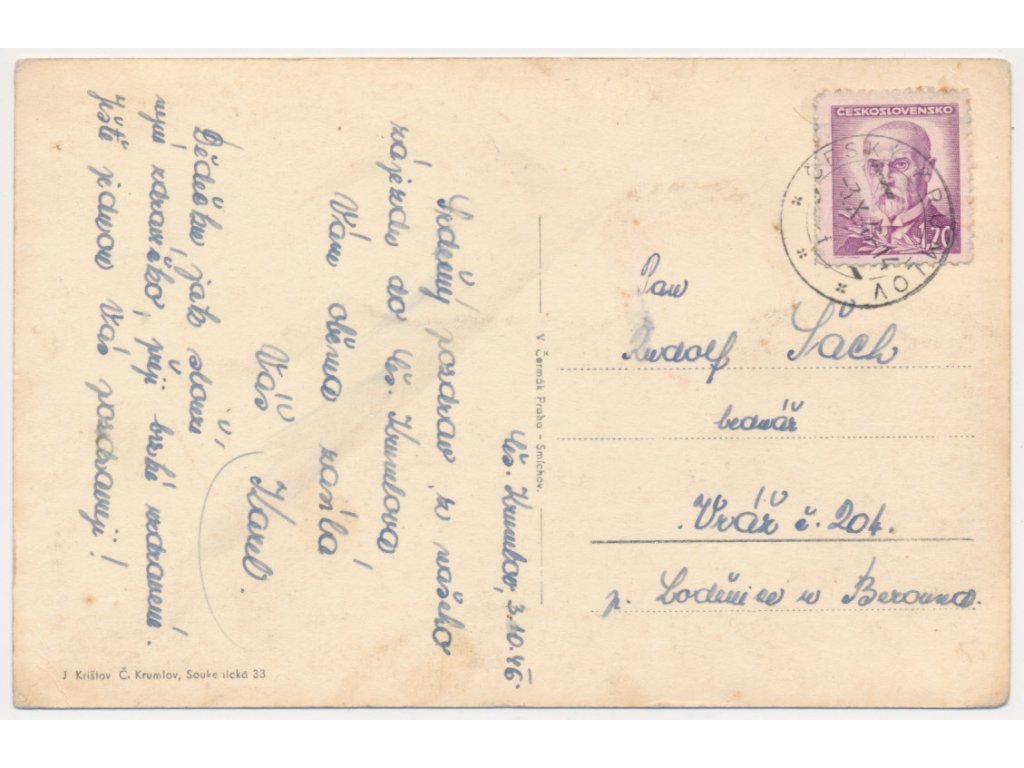 Čs. Krumlov, 3.10.46.
Srdečný pozdrav z našeho
zájezdu do Čs. Krumlova
Vám oběma zasílá
Váš Karel.
Dědečku, jak slouží
nyní zdravíčko, přeji brzké uzdravení.
Ještě jednou Vás pozdravuji!
J Krištov Č. Krumlov, Soukenická 33
V. Čermák Praha - Smíchov.
ČESKOSLOVENSKO
1.20
ČESKÝ KRUMLOV
Pan
Rudolf Šach
bednář
Vráž č. 204.
p. Loděnice u Berouna.